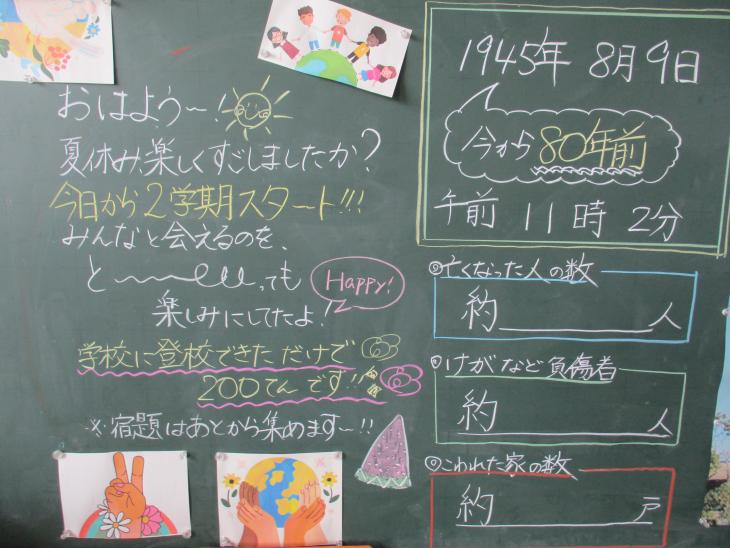 おはよう〜!
夏休み、楽しくすごしましたか?
今日から2学期スタート!!!
みんなと会えるのを、
と〜っても
楽しみにしてたよ!
Happy!
学校に登校できただけで
200てんです!!
※宿題はあとから集めます〜!!
1945年 8月9日
今から80年前
午前 11時 2分
◎亡くなった人の数
約 人
◎けがなど負傷者
約 人
◎こわれた家の数
約 戸